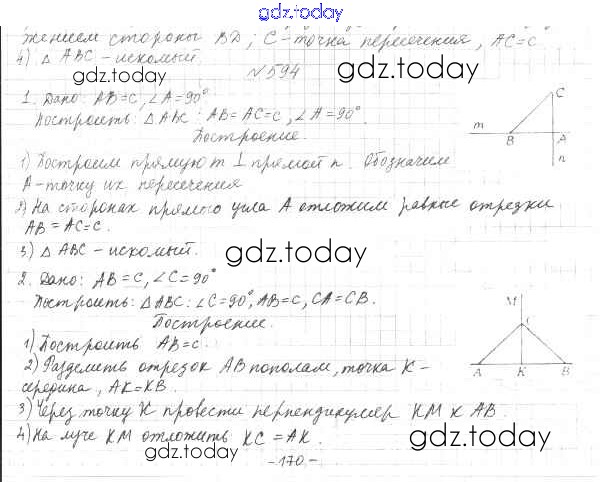 gdz.today
жением стороны BD; C - точка пересечения, AC=C
4) △ ABC - искомый.
gdz.today
№594
gdz.today
1. Дано: AB=C, ∠A=90°
Построить: △ABC: AB=AC=C, ∠A=90°.
Построение.
C
m B A
n
1) Построим прямую m ⊥ прямой n. Обозначим
A - точку их пересечения
2) На сторонах прямого угла A отложим равные отрезки
AB=AC=C.
3) △ ABC - искомый.
gdz.today
gdz.today
2. Дано: AB=C, ∠C=90°
Построить: △ABC: ∠C=90°, AB=C, CA=CB.
Построение.
M
C
A K B
1) Построить AB=C.
2) Разделить отрезок AB пополам, точка K -
середина, AK=KB.
3) Через точку K провести перпендикуляр KM к AB.
4) На луче KM отложить KC=AK.
gdz.today
gdz.today
-170-